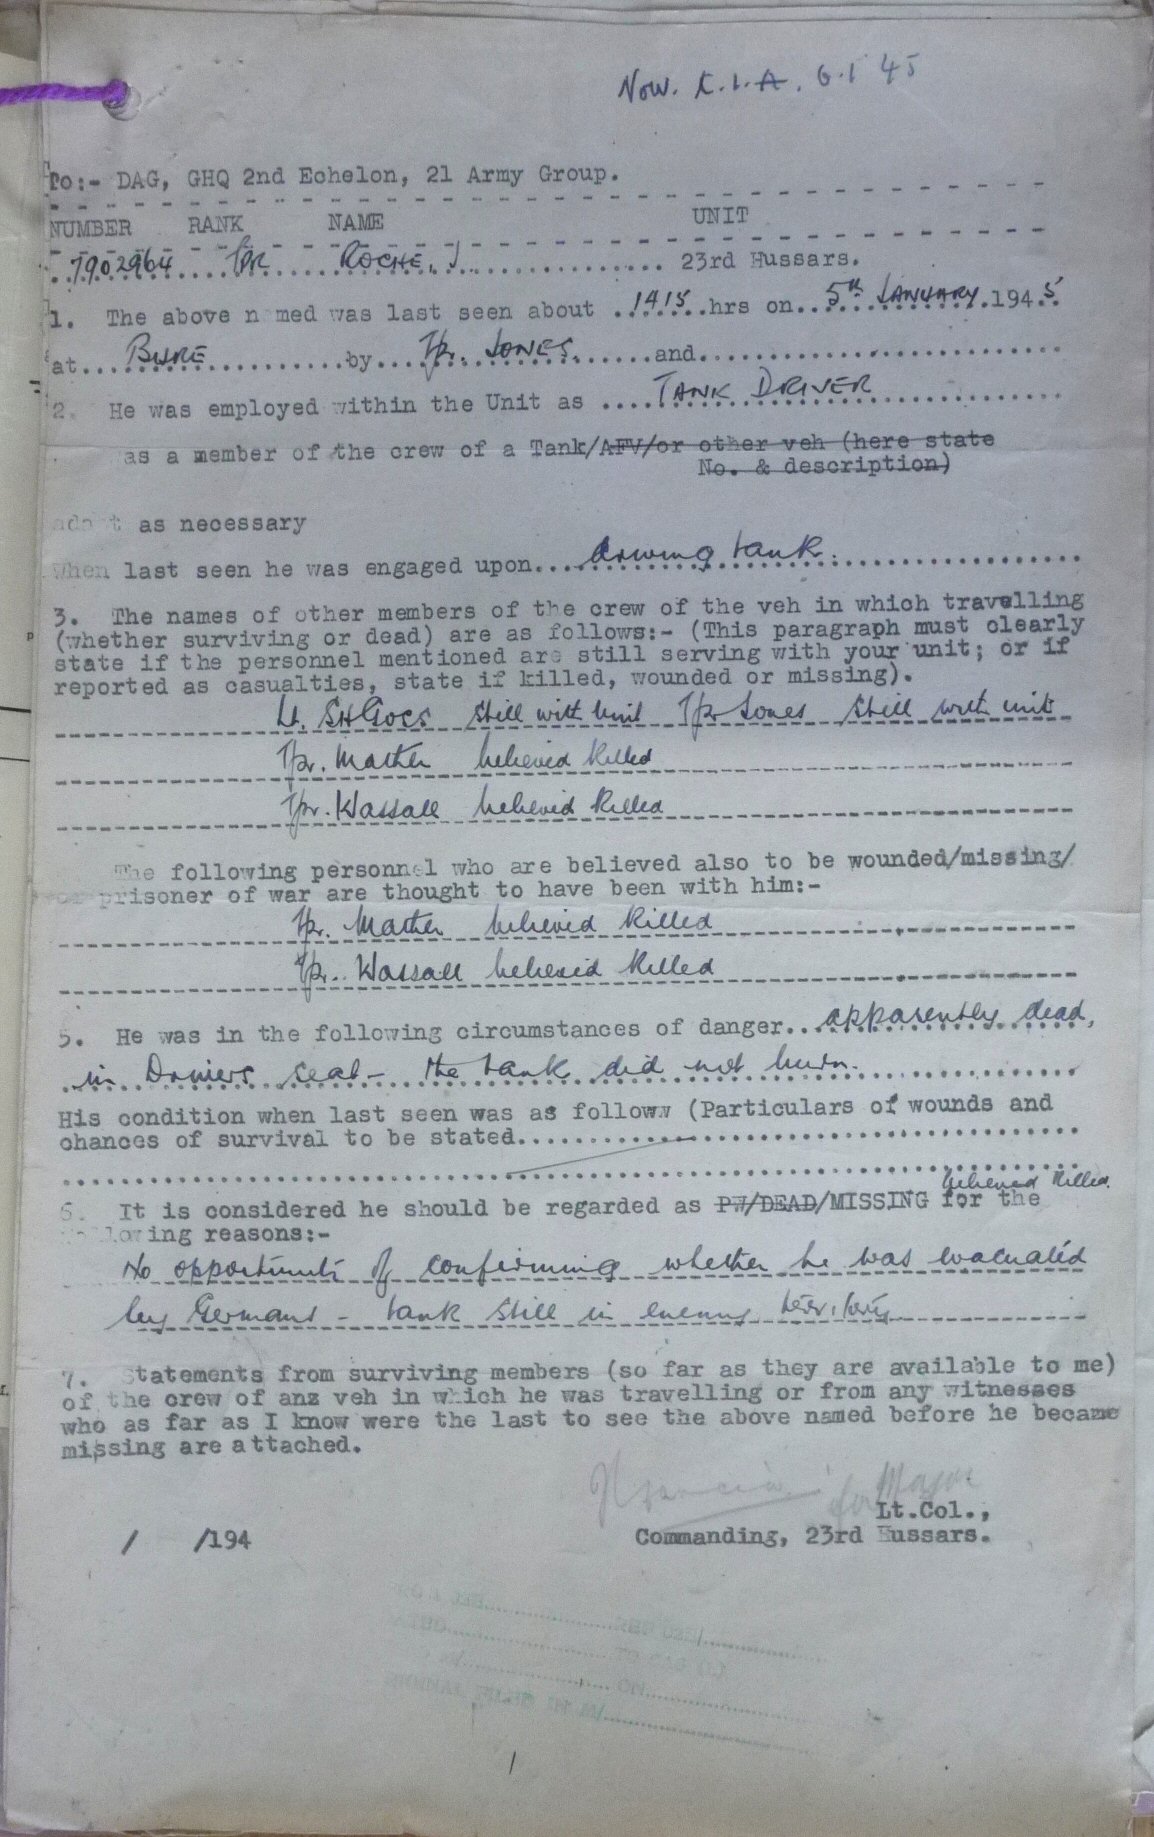 Now. K.I.A. 6.1 45
To:- DAG, GHQ 2nd Echelon, 21 Army Group.
NUMBER RANK NAME UNIT
7902964 Tpr ROCHE, J 23rd Hussars.
1. The above named was last seen about 1415 hrs on 5th JANUARY 1945
at BURE by Tpr. JONES and
2. He was employed within the Unit as TANK DRIVER
as a member of the crew of a Tank/AFV/or other veh (here state
No. & description)
adapt as necessary
When last seen he was engaged upon driving tank.
3. The names of other members of the crew of the veh in which travelling
(whether surviving or dead) are as follows:- (This paragraph must clearly
state if the personnel mentioned are still serving with your unit; or if
reported as casualties, state if killed, wounded or missing).
Lt. still with Unit Tpr Jones still with unit
Tpr. Mather believed killed
Tpr. Wassall believed killed
The following personnel who are believed also to be wounded/missing/
or prisoner of war are thought to have been with him:-
Tpr. Mather believed killed
Tpr. Wassall believed killed
5. He was in the following circumstances of danger apparently dead,
in Drivers seat - the tank did not burn.
His condition when last seen was as follows (Particulars of wounds and
chances of survival to be stated
believed killed.
6. It is considered he should be regarded as PW/DEAD/MISSING for the
following reasons:-
No opportunity of confirming whether he was evacuated
by Germans - tank still in enemy territory
7. Statements from surviving members (so far as they are available to me)
of the crew of anz veh in which he was travelling or from any witnesses
who as far as I know were the last to see the above named before he became
missing are attached.
for Major
Lt.Col.,
/ /194 Commanding, 23rd Hussars.